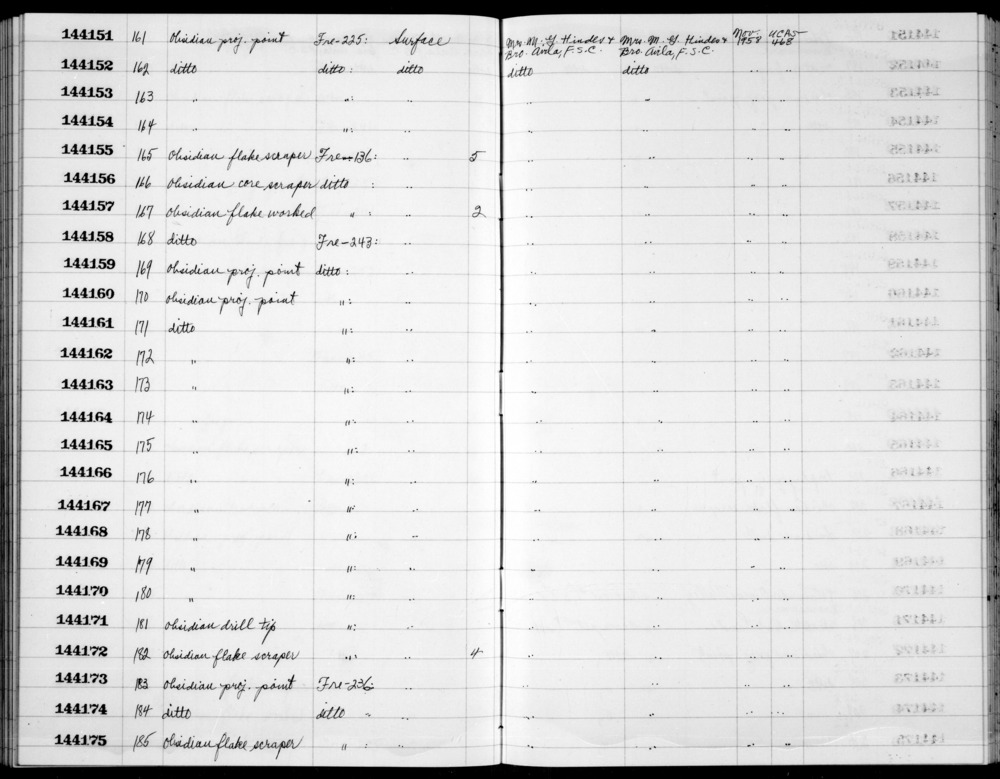 144151 161 Obsidian proj. point Fre-225: Surface Mrs. M. G. Hindes & Bro. Avila, F.S.C. Mrs. M. G. Hindes & Bro. Avila, F.S.C. Nov- 1958 UCAS- 468
144152 162 ditto ditto: ditto ditto ditto " "
144153 163 " ": " " " " "
144154 164 " ": " " " " "
144155 165 Obsidian flake scraper Fre-136: " 5 " " " "
144156 166 Obsidian core scraper ditto : " " " " "
144157 167 Obsidian flake worked " : " 2 " " " "
144158 168 ditto Fre-243: " " " " "
144159 169 Obsidian proj. point ditto: " " " " "
144160 170 obsidian proj. point ": " " " " "
144161 171 ditto ": " " " " "
144162 172 " ": " " " " "
144163 173 " ": " " " " "
144164 174 " ": " " " " "
144165 175 " ": " " " " "
144166 176 " ": " " " " "
144167 177 " ": " " " " "
144168 178 " ": " " " " "
144169 179 " ": " " " " "
144170 180 " ": " " " " "
144171 181 obsidian drill tip ": " " " " "
144172 182 obsidian flake scraper ": " 4 " " " "
144173 183 obsidian proj. point Fre-236: " " " " "
144174 184 ditto ditto " " " " " "
144175 185 Obsidian flake scraper " : " " " " "